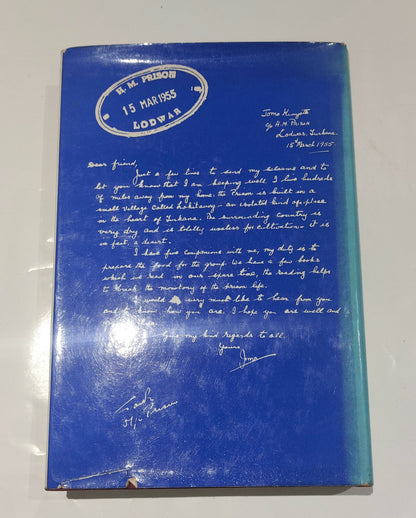 H. M. PRISON
15 MAR 1955
LODWAR
Jomo Kenyatta
c/o H.M. Prison
Lodwar, Turkana
15th March 1955
Dear friend,
Just a few lines to send my salaams and to
let you know that I am keeping well. I live hundreds
of miles away from my home. The Prison is built in a
small village called Lokitaung - an isolated kind of place
in the heart of Turkana. The surrounding country is
very dry and is totally useless for cultivation - it is
in fact a desert.
I have five companions with me, my duty is to
prepare the food for the group. We have a few books
which we read in our spare time, the reading helps
to break the monotony of the prison life.
I would very much like to hear from you
and know how you are. I hope you are well and
Give my kind regards to all.
Yours,
Jomo
I/c Prison